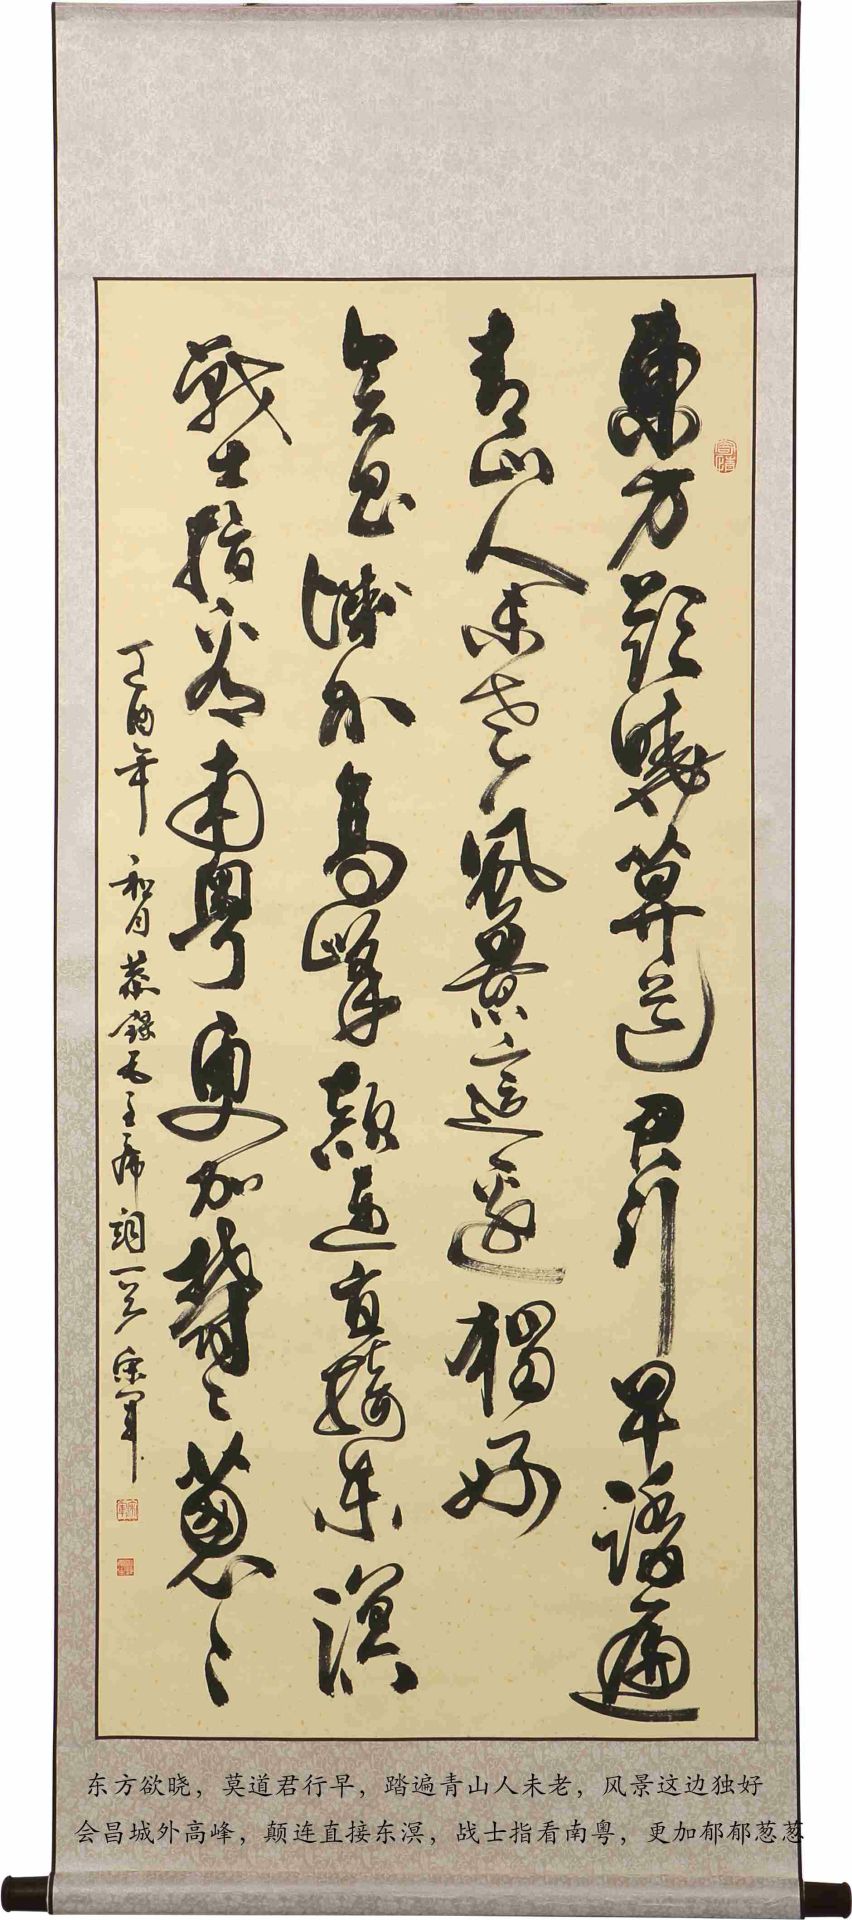 東方欲曉莫道君行早踏遍
青山人未老風景這邊獨好
會昌城外高峰顛連直接東溟
戰士指看南粵更加鬱〻蔥〻
丁酉年 月 恭錄毛主席詞一首 軍
东方欲晓，莫道君行早，踏遍青山人未老，风景这边独好
会昌城外高峰，颠连直接东溟，战士指看南粤，更加郁郁葱葱